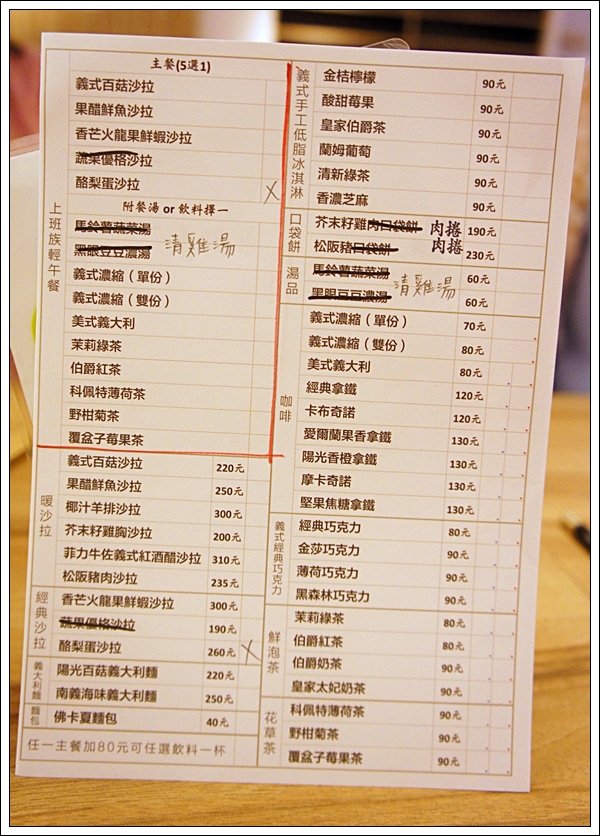 上班族輕午餐
主餐(5選1)
義式百菇沙拉
果醋鮮魚沙拉
香芒火龍果鮮蝦沙拉
蔬果優格沙拉
酪梨蛋沙拉 X
附餐湯 or 飲料擇一
馬鈴薯蔬菜湯
黑眼豆豆濃湯 清雞湯
義式濃縮（單份）
義式濃縮（雙份）
美式義大利
茉莉綠茶
伯爵紅茶
科佩特薄荷茶
野柑菊茶
覆盆子莓果茶
暖沙拉
義式百菇沙拉 220元
果醋鮮魚沙拉 250元
椰汁羊排沙拉 300元
芥末籽雞胸沙拉 200元
菲力牛佐義式紅酒醋沙拉 310元
松阪豬肉沙拉 235元
經典沙拉
香芒火龍果鮮蝦沙拉 300元
蔬果優格沙拉 190元
酪梨蛋沙拉 260元 X
義大利麵
陽光百菇義大利麵 220元
南義海味義大利麵 250元
麵包
佛卡夏麵包 40元
任一主餐加80元可任選飲料一杯
義式手工低脂冰淇淋
金桔檸檬 90元
酸甜莓果 90元
皇家伯爵茶 90元
蘭姆葡萄 90元
清新綠茶 90元
香濃芝麻 90元
口袋餅
芥末籽雞肉口袋餅 肉捲 190元
松阪豬口袋餅 肉捲 230元
湯品
馬鈴薯蔬菜湯 60元
黑眼豆豆濃湯 清雞湯 60元
咖啡
義式濃縮（單份） 70元
義式濃縮（雙份） 80元
美式義大利 80元
經典拿鐵 120元
卡布奇諾 120元
愛爾蘭果香拿鐵 130元
陽光香橙拿鐵 130元
摩卡奇諾 130元
堅果焦糖拿鐵 130元
義式經典巧克力
經典巧克力 80元
金莎巧克力 90元
薄荷巧克力 90元
黑森林巧克力 90元
鮮泡茶
茉莉綠茶 80元
伯爵紅茶 80元
伯爵奶茶 90元
皇家太妃奶茶 90元
花草茶
科佩特薄荷茶 90元
野柑菊茶 90元
覆盆子莓果茶 90元